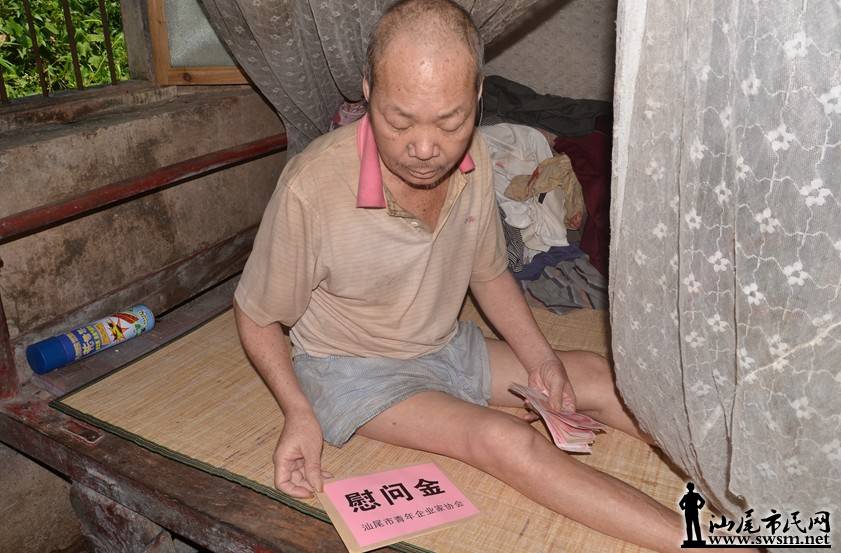 慰问金
汕尾市青年企业家协会
汕尾市民网
www.swsm.net